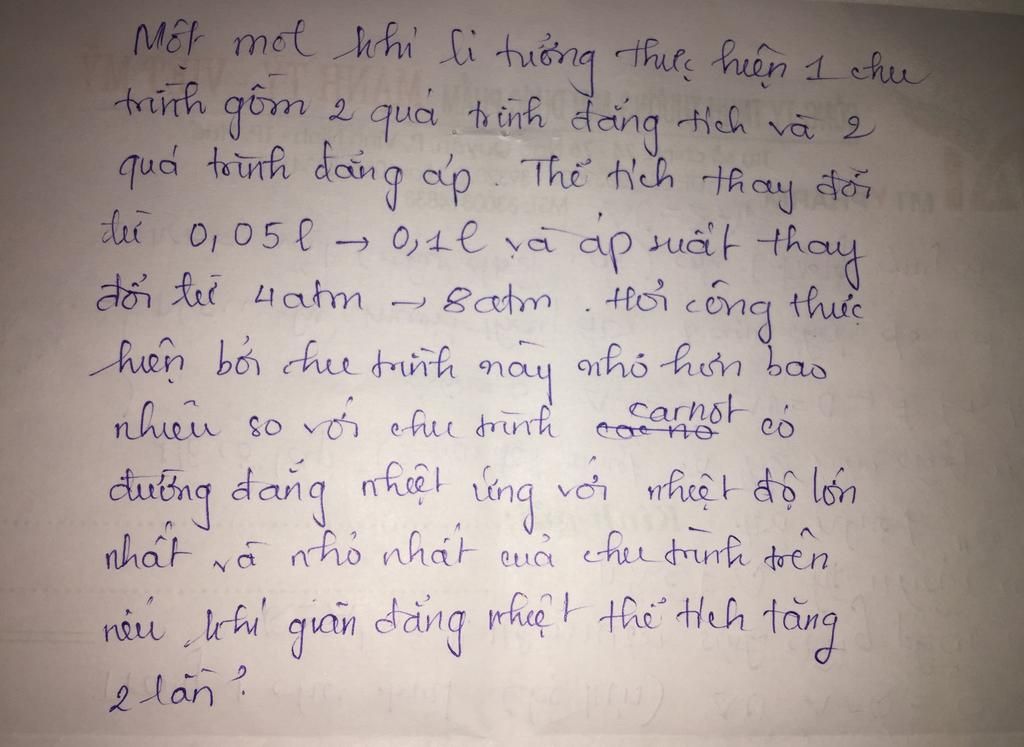 Một mol khí lí tưởng thực hiện 1 chu
trình gồm 2 quá trình đẳng tích và 2
quá trình đẳng áp. Thể tích thay đổi
từ 0,05l → 0,1l và áp suất thay
đổi từ 4atm → 8atm. Hỏi công thực
hiện bởi chu trình này nhỏ hơn bao
nhiêu so với chu trình carnot có
đường đẳng nhiệt ứng với nhiệt độ lớn
nhất và nhỏ nhất của chu trình trên
nếu khí giãn đẳng nhiệt thể tích tăng
2 lần?